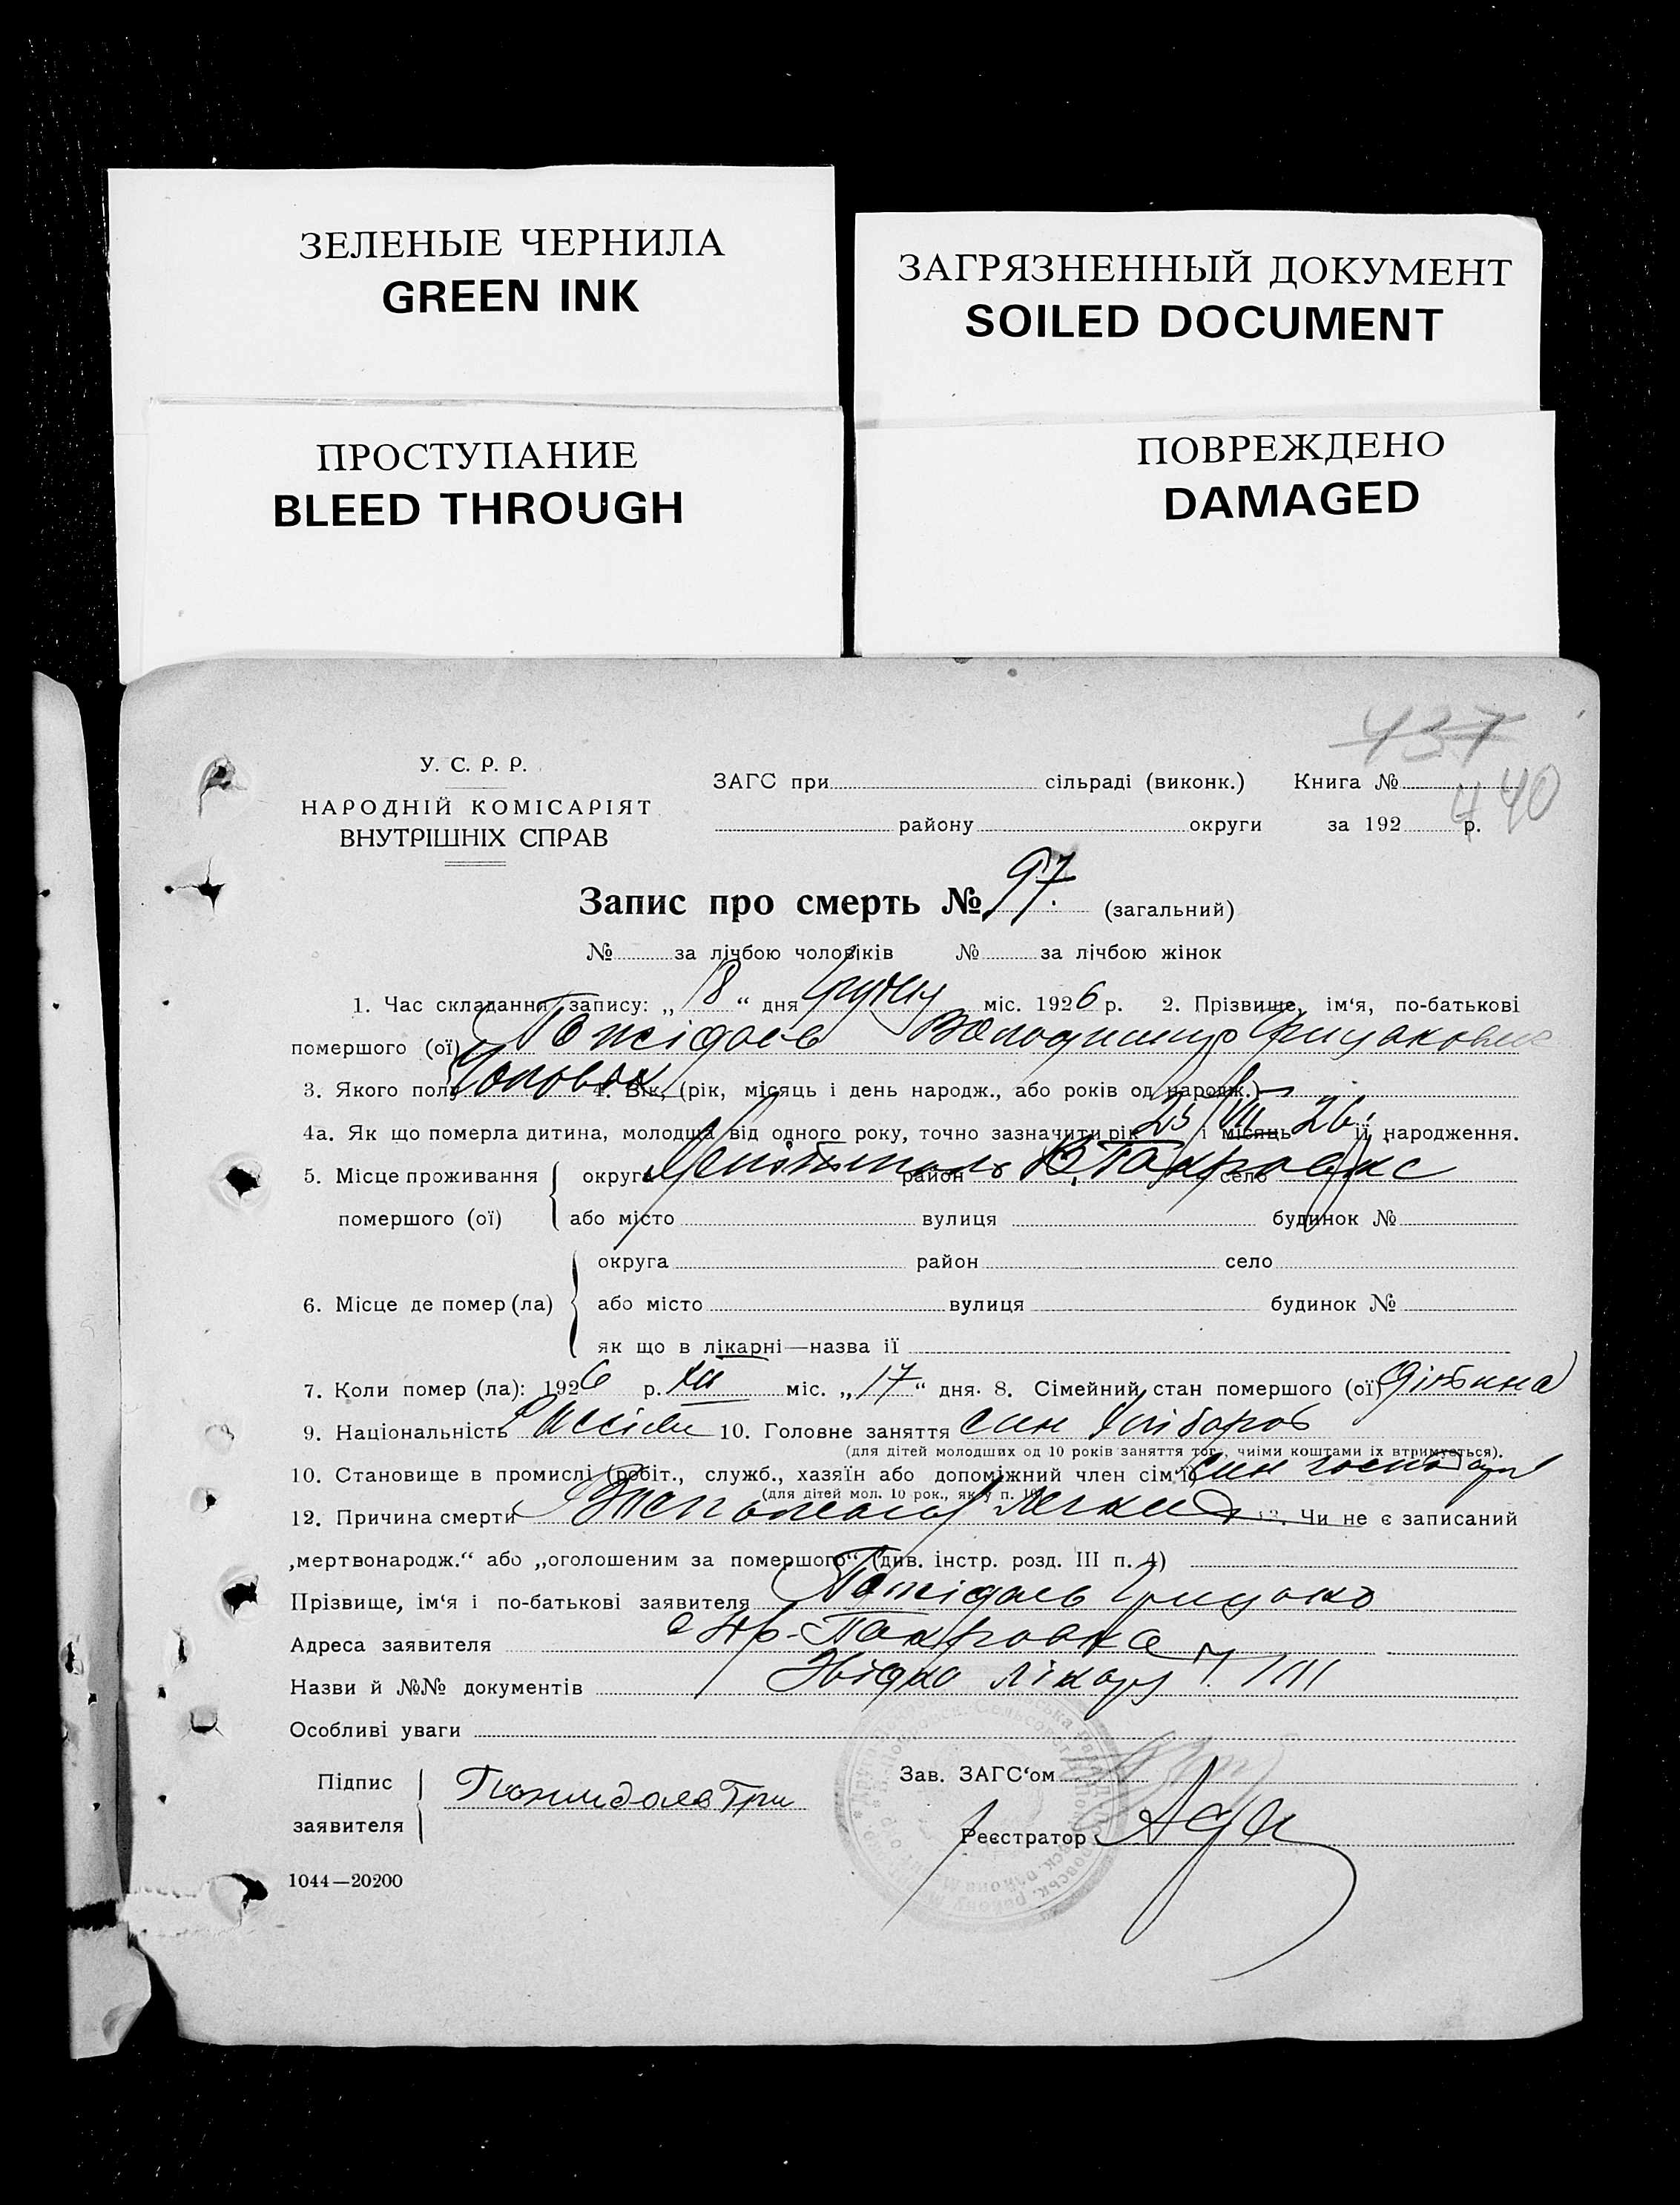 ЗЕЛЕНЫЕ ЧЕРНИЛА
GREEN INK
ЗАГРЯЗНЕННЫЙ ДОКУМЕНТ
SOILED DOCUMENT
ПРОСТУПАНИЕ
BLEED THROUGH
ПОВРЕЖДЕНО
DAMAGED
437
440
У. С. Р. Р.
НАРОДНІЙ КОМІСАРІЯТ
ВНУТРІШНІХ СПРАВ
ЗАГС при сільраді (виконк.) Книга №
району округи за 192 р.
Запис про смерть № 97. (загальний)
№ за лічбою чоловіків № за лічбою жінок
1. Час складання запису: „ 18 “ дня грудня міс. 1926 р. 2. Прізвище, ім‘я, по-батькові
помершого (ої) Володимир Грицакович
3. Якого полу Чоловік 4. Вік, (рік, місяць і день народж., або років од народж.)
4а. Як що померла дитина, молодша від одного року, точно зазначити рік 25 і місяць VII 26 її народження.
5. Місце проживання округа район село
помершого (ої) або місто вулиця будинок №
округа район село
6. Місце де помер (ла) або місто вулиця будинок №
як що в лікарні—назва її
7. Коли помер (ла): 1926 р. XII міс. „ 17 “ дня. 8. Сімейний стан помершого (ої) дітина
9. Національність 10. Головне заняття син хліборов
(для дітей молодших од 10 років заняття тог, чиїми коштами їх втримується).
10. Становище в промислі (робіт., служб., хазяїн або допоміжний член сім‘ї) син господар
(для дітей мол. 10 рок., як у п. 10)
12. Причина смерти 13. Чи не є записаний
„мертвонародж.“ або „оголошеним за помершого“ (див. інстр. розд. III п. 4)
Прізвище, ім‘я і по-батькові заявителя Грицько
Адреса заявителя
Назви й №№ документів лікаря
Особливі уваги
Підпис
заявителя
Зав. ЗАГС‘ом
Реєстратор
1044—20200